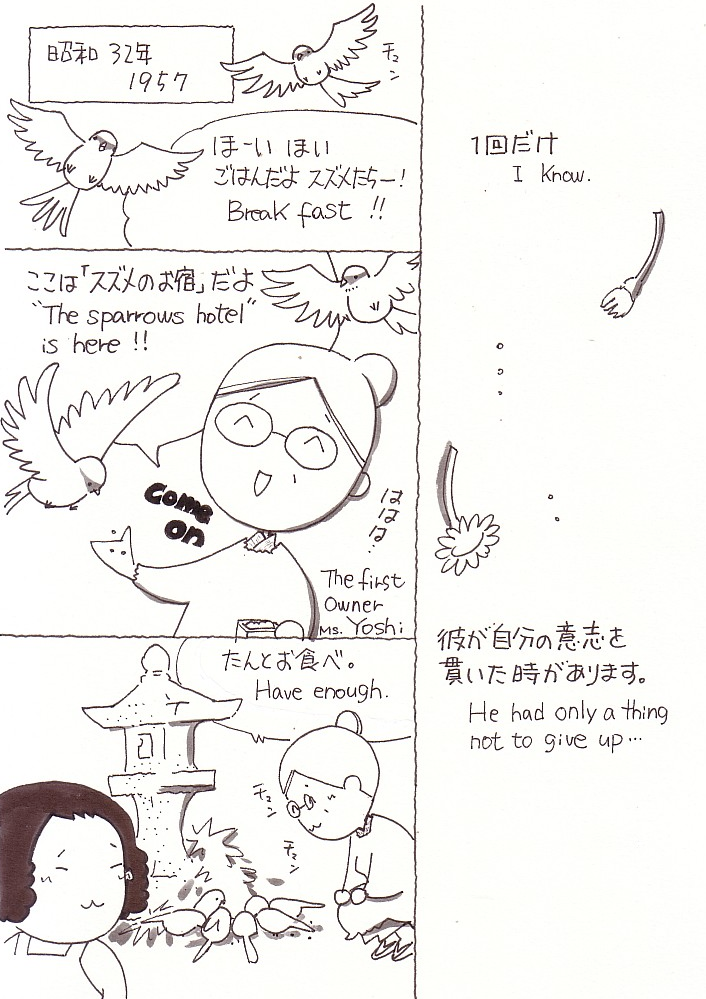 1回だけ
I know.
彼が自分の意志を
貫いた時があります。
He had only a thing
not to give up…
昭和 32年
1957
チュン
ほーい ほい
ごはんだよ スズメたちー!
Break fast !!
ここは「スズメのお宿」だよ
"The sparrows hotel"
is here !!
Come
on
ははは…
The first
Owner
Ms. Yoshi
たんとお食べ。
Have enough.
チュン
チュン